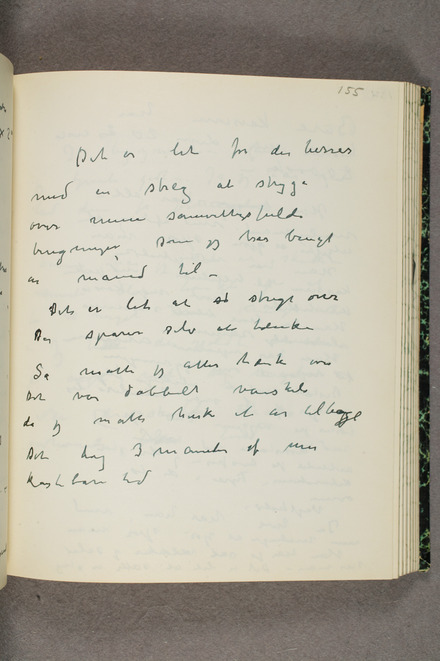 155
Det er let for den herrer
med en streg at stryge
over mine samvittighedsfulde
som jeg har brugt
en måned til –
Det er let at stryge over
De sparer selv at tænke
Så måtte jeg atter tænke over
Det var dobbelt vanskelig
da jeg måtte huske et år tilbage
Det tog 3 måneder af min
kostbare tid